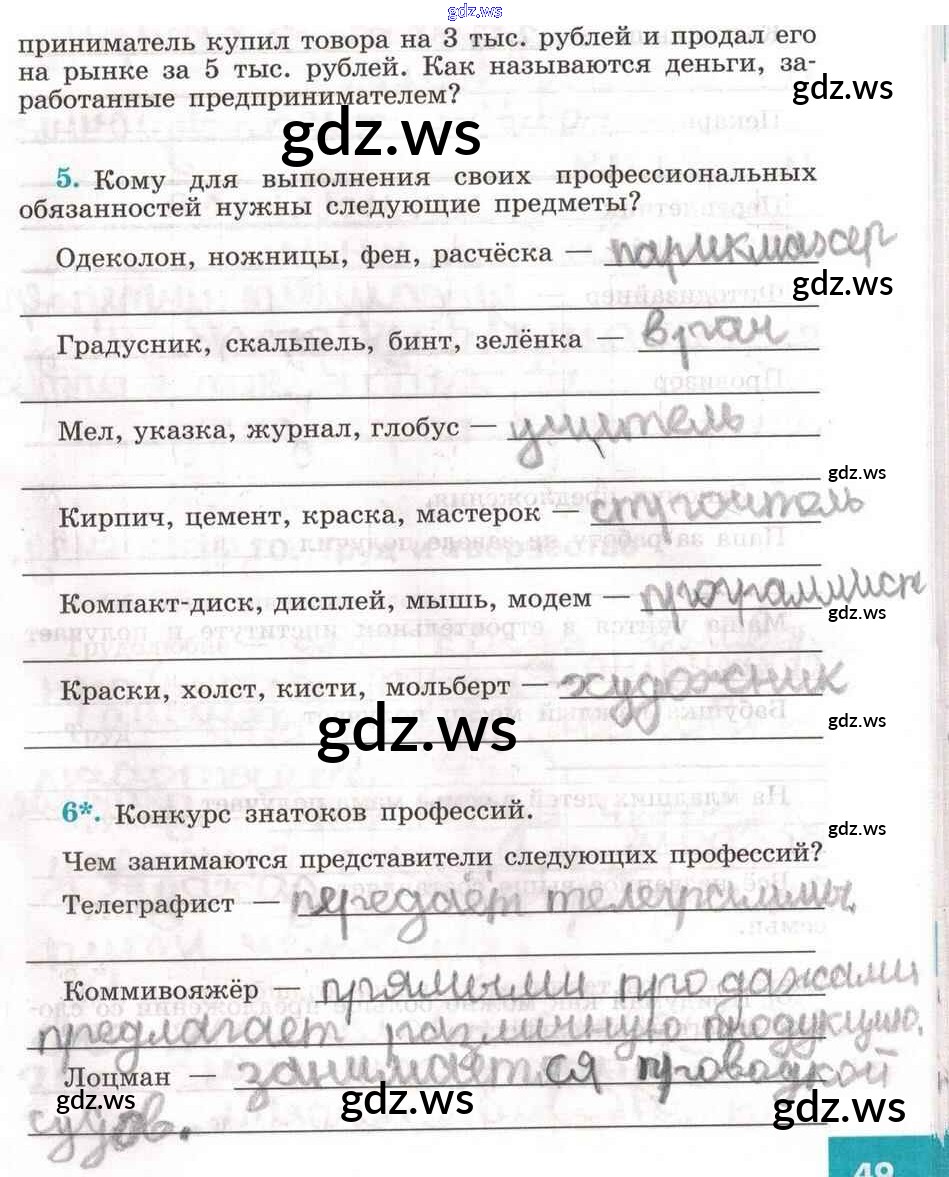 gdz.ws
приниматель купил товора на 3 тыс. рублей и продал его
на рынке за 5 тыс. рублей. Как называются деньги, за-
gdz.ws
работанные предпринимателем?
gdz.ws
5. Кому для выполнения своих профессиональных
обязанностей нужны следующие предметы?
Одеколон, ножницы, фен, расчёска — парикмахер
gdz.ws
Градусник, скальпель, бинт, зелёнка — врач
Мел, указка, журнал, глобус — учитель
gdz.ws
Кирпич, цемент, краска, мастерок — строитель
Компакт-диск, дисплей, мышь, модем — программист
gdz.ws
Краски, холст, кисти, мольберт — художник
gdz.ws
gdz.ws
6*. Конкурс знатоков профессий.
gdz.ws
Чем занимаются представители следующих профессий?
Телеграфист — передаёт телеграммы.
Коммивояжёр — прямыми продажами
предлагает различную продукцию.
Лоцман — занимается проводкой
gdz.ws gdz.ws gdz.ws
судов.
49